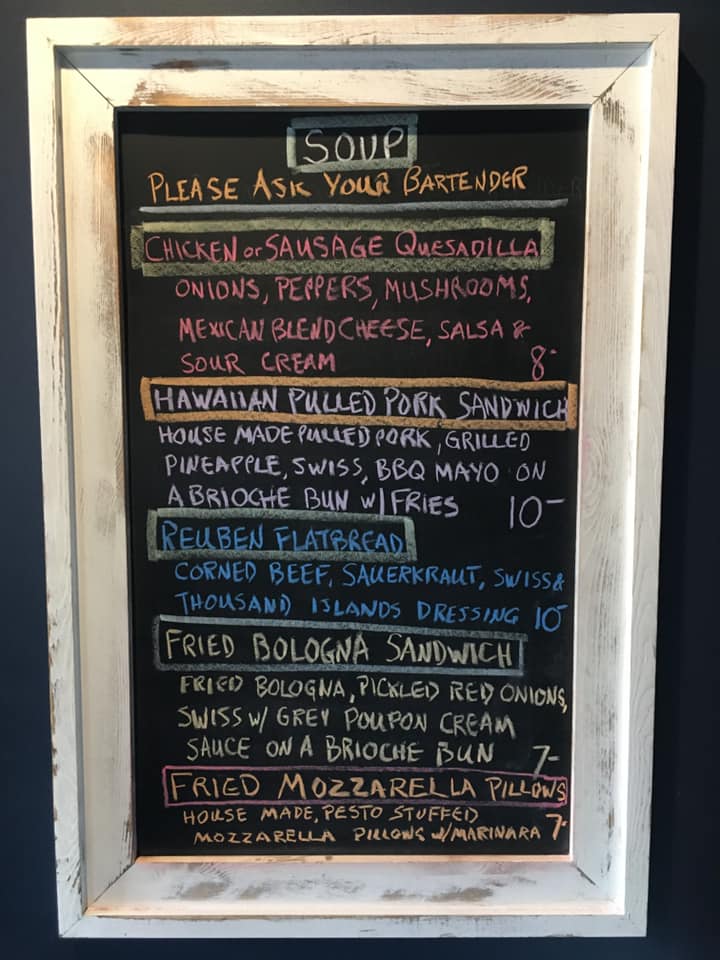 SOUP
PLEASE ASK YOUR BARTENDER
CHICKEN or SAUSAGE QUESADILLA
ONIONS, PEPPERS, MUSHROOMS,
MEXICAN BLEND CHEESE, SALSA &
SOUR CREAM 8-
HAWAIIAN PULLED PORK SANDWICH
HOUSE MADE PULLED PORK, GRILLED
PINEAPPLE, SWISS, BBQ MAYO ON
A BRIOCHE BUN W/ FRIES 10-
REUBEN FLATBREAD
CORNED BEEF, SAUERKRAUT, SWISS &
THOUSAND ISLANDS DRESSING 10-
FRIED BOLOGNA SANDWICH
FRIED BOLOGNA, PICKLED RED ONIONS,
SWISS W/ GREY POUPON CREAM
SAUCE ON A BRIOCHE BUN 7-
FRIED MOZZARELLA PILLOWS
HOUSE MADE, PESTO STUFFED
MOZZARELLA PILLOWS W/ MARINARA 7-